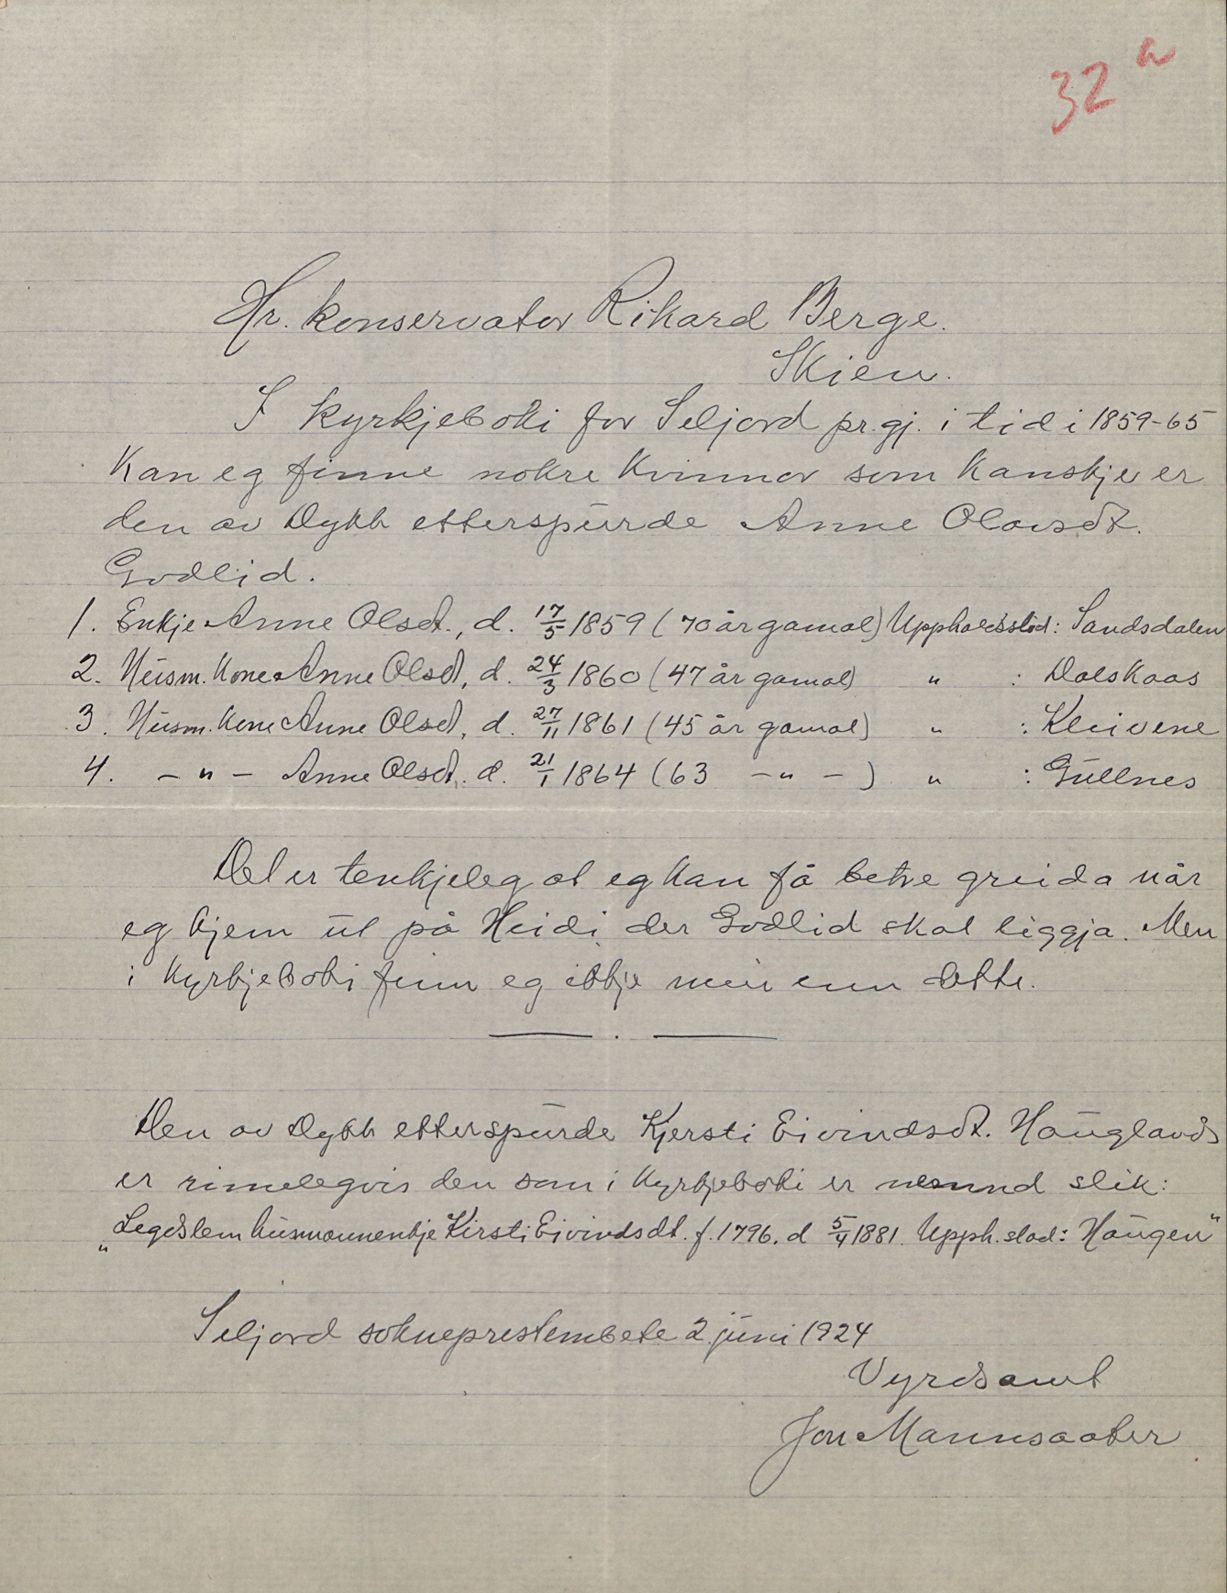 32 a
Hr. konservator Rikard Berge.
Skien.
I kyrkjeboki for Seljord pr.gj. i tidi 1859-65
kan eg finne nokre kvinnor som kanskje er
den av Dykk etterspurde Anne Olavsdt.
Godlid.
1. Enkje Anne Olsdt., d. 17/5 1859 (70 år gamal) Uppholdsstad: Sandsdalen
2. Húsm. kone Anne Olsdt, d. 24/3 1860 (47 år gamal) " : Dalskaas
3. Húsm. kone Anne Olsdt, d. 27/11 1861 (45 år gamal) " : Kleivene
4. - " - Anne Olsdt. d. 21/1 1864 (63 - " - ) " : Gullnes
Det er tenkjeleg at eg kan få betre greida når
eg kjem ut på Heidi, der Godlid skal liggja. Men
i kyrkjeboki finn eg ikkje meir enn dette.
Den av Dykk etterspurde Kjersti Eivindsdt. Hauglands
er rimelegvis den som i kyrkjeboki er nemnd slik:
"Legdslem húsmannenkje Kirsti Eivindsdt. f. 1796. d 5/4 1881. Upph. stad: Haugen"
Seljord sokneprestembete 2 juni 1924
Vyrdsamt
Jon Mannsaaker